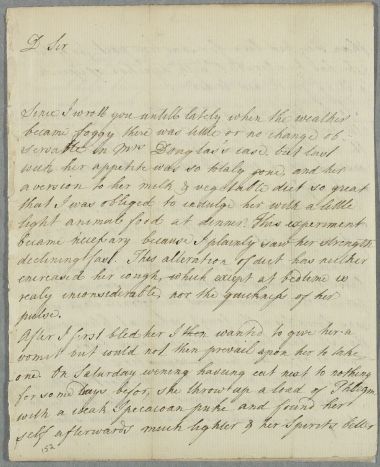 D Sir
Since I wrote you untill lately when the weather
became foggy there was little or no change ob
servable in Mrs Douglas's case, but last
week her appetite was so totaly gone and her
aversion to her milk & vegetable diet so great
that I was obliged to indulge her with a little
light animale food at dinner. This experiment
became necessary because I plainly saw her strength
declining fast. This alteration of diet has neither
encreased her cough, which except at bedtime is
realy inconsiderable, nor the quickness of her
pulse.
After I first bled her I then wanted to give her a
vomit but could not then prevail upon her to take
one. On Saturday evening having eat next to nothing
for some days befor, she throw up a load of Phlegm
with a weak Ipecacoan puke and found her
self afterwards much lighter & her spirits better
152